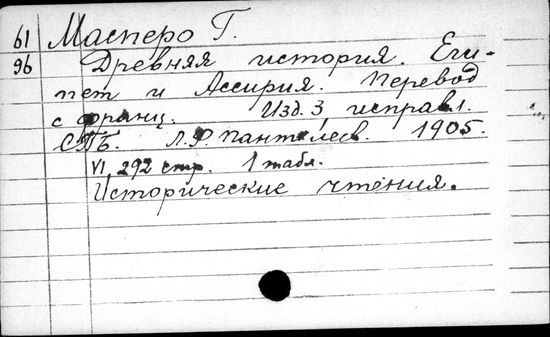 61 Масперо Г.
96 Древняя история. Еги-
пет и Ассирия. Перевод
с франц. Изд. 3, исправл.
СПБ. Л.Ф. Пантелеев. 1905.
VI, 292 стр. 1 табл.
Исторические чтения.